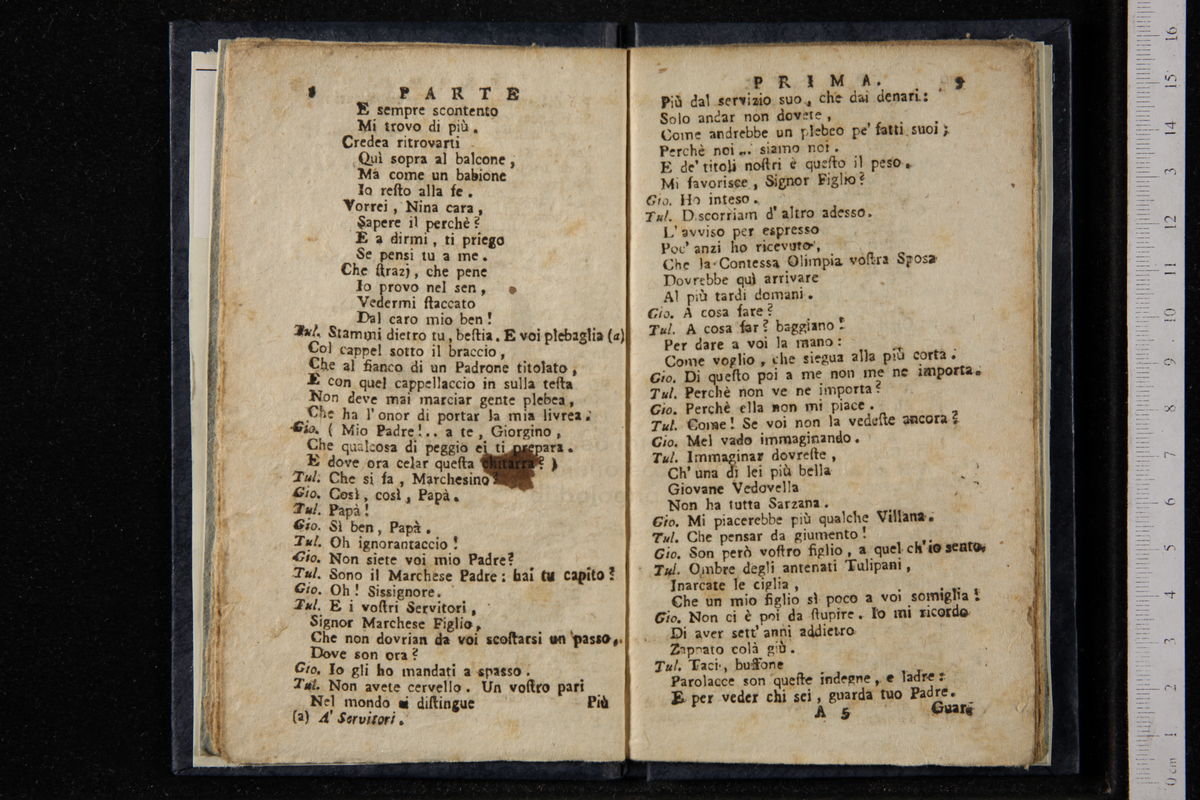 8 PARTE
E sempre scontento
Mi trovo di più.
Credea ritrovarti
Quì sopra al balcone,
Ma come un babione
Io resto alla fe.
Vorrei, Nina cara,
Sapere il perchè?
E a dirmi, ti priego
Se pensi tu a me.
Che strazj, che pene
Io provo nel sen,
Vedermi staccato
Dal caro mio ben!
Tul. Stammi dietro tu, bestia. E voi plebaglia (a)
Col cappel sotto il braccio,
Che al fianco di un Padrone titolato,
E con quel cappellaccio in sulla testa
Non deve mai marciar gente plebea,
Che ha l'onor di portar la mia livrea.
Gio. (Mio Padre!.. a te, Giorgino,
Che qualcosa di peggio ei ti prepara.
E dove ora celar questa chitarra?)
Tul. Che si fa, Marchesino?
Gio. Così, così, Papà.
Tul. Papà!
Gio. Sì ben, Papà.
Tul. Oh ignorantaccio!
Gio. Non siete voi mio Padre?
Tul. Sono il Marchese Padre: hai tu capito?
Gio. Oh! Sissignore.
Tul. E i vostri Servitori,
Signor Marchese Figlio,
Che non dovrian da voi scostarsi un passo,
Dove son ora?
Gio. Io gli ho mandati a spasso.
Tul. Non avete cervello. Un vostro pari
Nel mondo si distingue Più
(a) A' Servitori.
PRIMA. 9
Più dal servizio suo, che dai denari:
Solo andar non dovete,
Come andrebbe un plebeo pe' fatti suoi;
Perchè noi... siamo noi.
E de' titoli nostri è questo il peso.
Mi favorisce, Signor Figlio?
Gio. Ho inteso.
Tul. Discorriam d'altro adesso.
L'avviso per espresso
Poc' anzi ho ricevuto,
Che la Contessa Olimpia vostra Sposa
Dovrebbe quì arrivare
Al più tardi domani.
Gio. A cosa fare?
Tul. A cosa far? baggiano!
Per dare a voi la mano:
Come voglio, che siegua alla più corta.
Gio. Di questo poi a me non me ne importa.
Tul. Perchè non ve ne importa?
Gio. Perchè ella non mi piace.
Tul. Come! Se voi non la vedeste ancora?
Gio. Mel vado immaginando.
Tul. Immaginar dovreste,
Ch'una di lei più bella
Giovane Vedovella
Non ha tutta Sarzana.
Gio. Mi piacerebbe più qualche Villana.
Tul. Che pensar da giumento!
Gio. Son però vostro figlio, a quel ch'io sento.
Tul. Ombre degli antenati Tulipani,
Inarcate le ciglia,
Che un mio figlio sì poco a voi somiglia!
Gio. Non ci è poi da stupire. Io mi ricordo
Di aver sett' anni addietro
Zappato colà giù.
Tul. Taci, buffone
Parolacce son queste indegne, e ladre:
E per veder chi sei, guarda tuo Padre.
A 5 Guar-